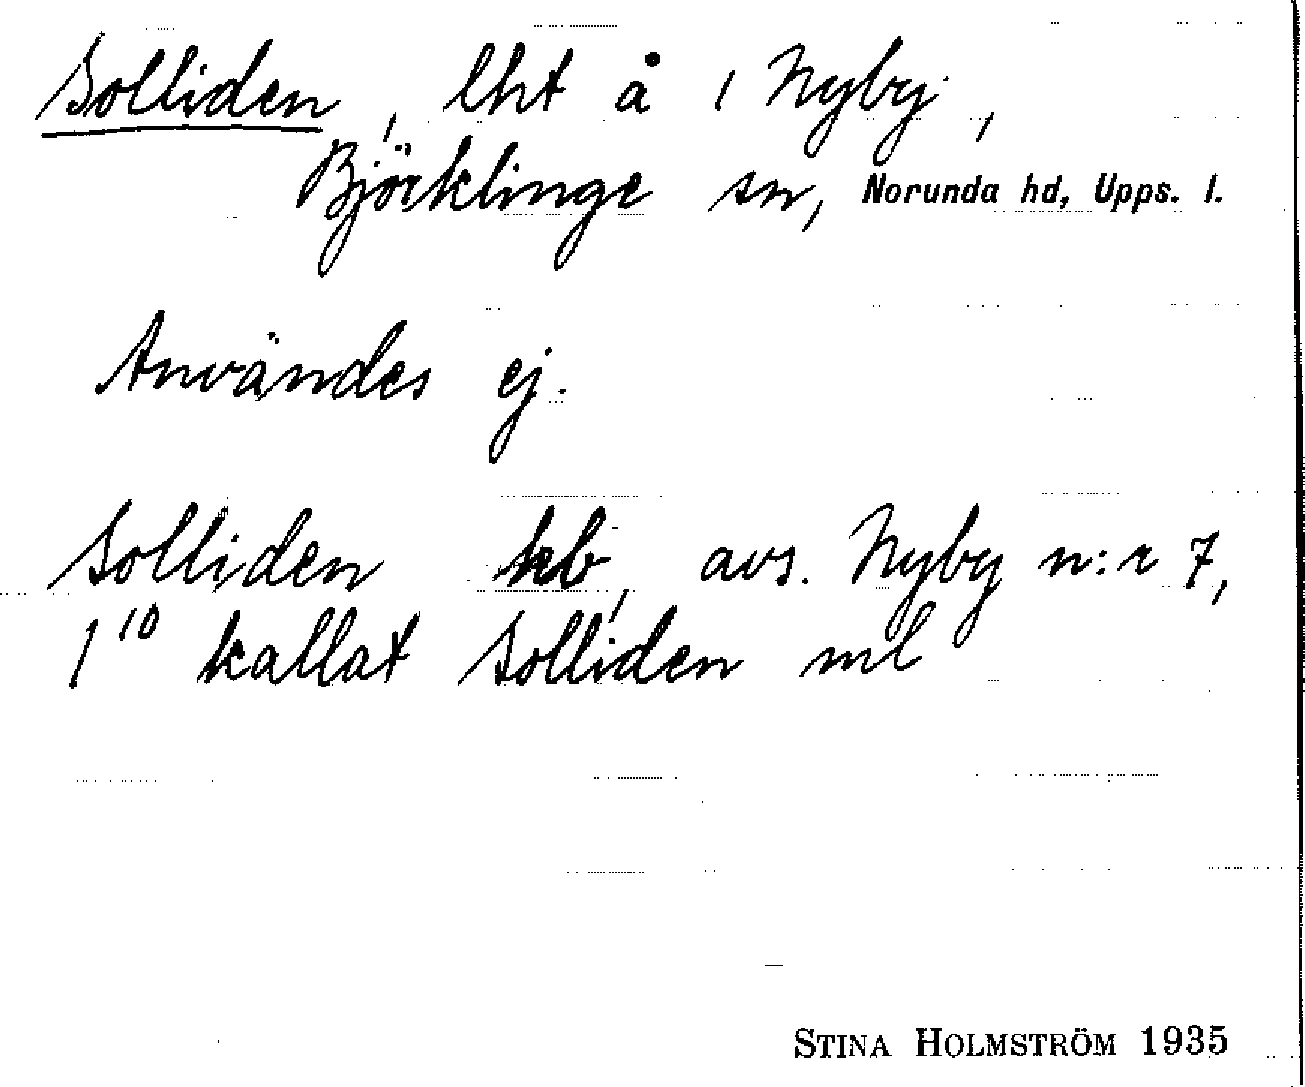 Solliden, lht å 1 Nyby,
Björklinge sn, Norunda hd, Upps. l.
Användes ej.
Solliden hb, avs. Nyby n:r 7,
1¹⁰ kallat Solliden ml
STINA HOLMSTRÖM 1935